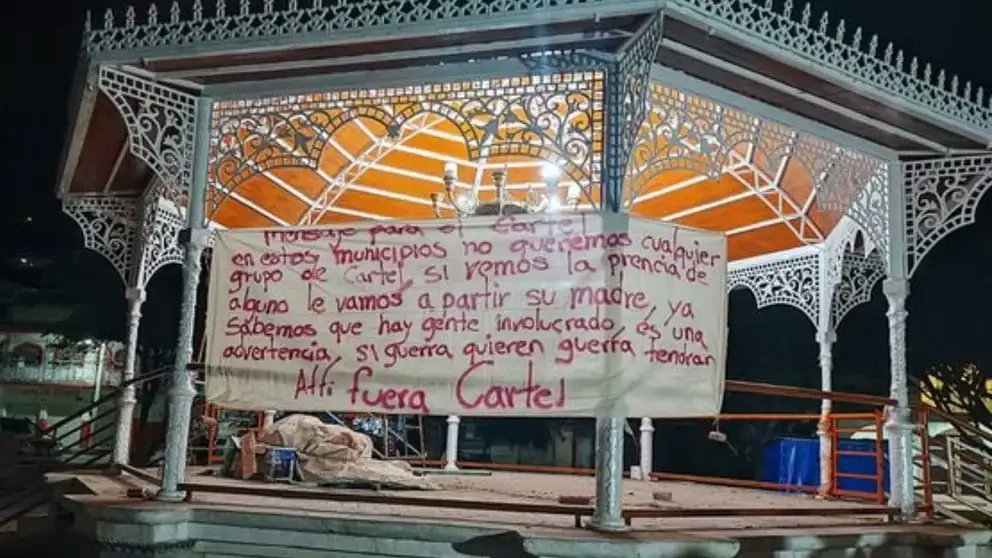 mensaje para el Cartel
en estos municipios no queremos cualquier
grupo de Cartel, si vemos la prencia de
alguno le vamos a partir su madre, ya
sabemos que hay gente involucrado, es una
advertencia, si guerra quieren guerra tendran
Att: fuera Cartel